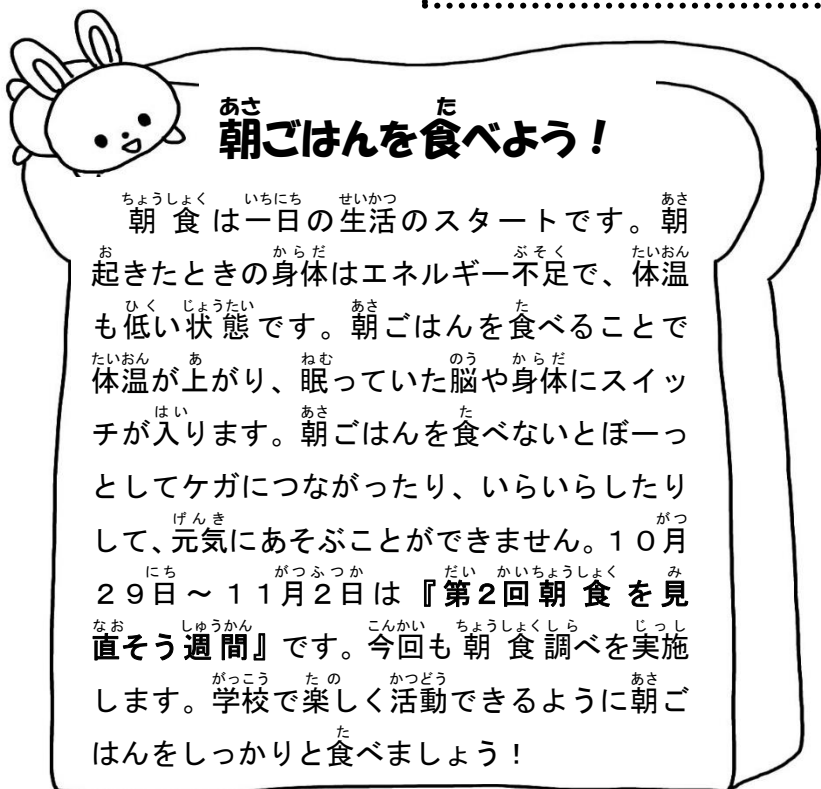 朝ごはんを食べよう！
朝食は一日の生活のスタートです。朝
起きたときの身体はエネルギー不足で、体温
も低い状態です。朝ごはんを食べることで
体温が上がり、眠っていた脳や身体にスイッ
チが入ります。朝ごはんを食べないとぼーっ
としてケガにつながったり、いらいらしたり
して、元気にあそぶことができません。１０月
２９日～１１月２日は『第２回朝食を見
直そう週間』です。今回も朝食調べを実施
します。学校で楽しく活動できるように朝ご
はんをしっかりと食べましょう！